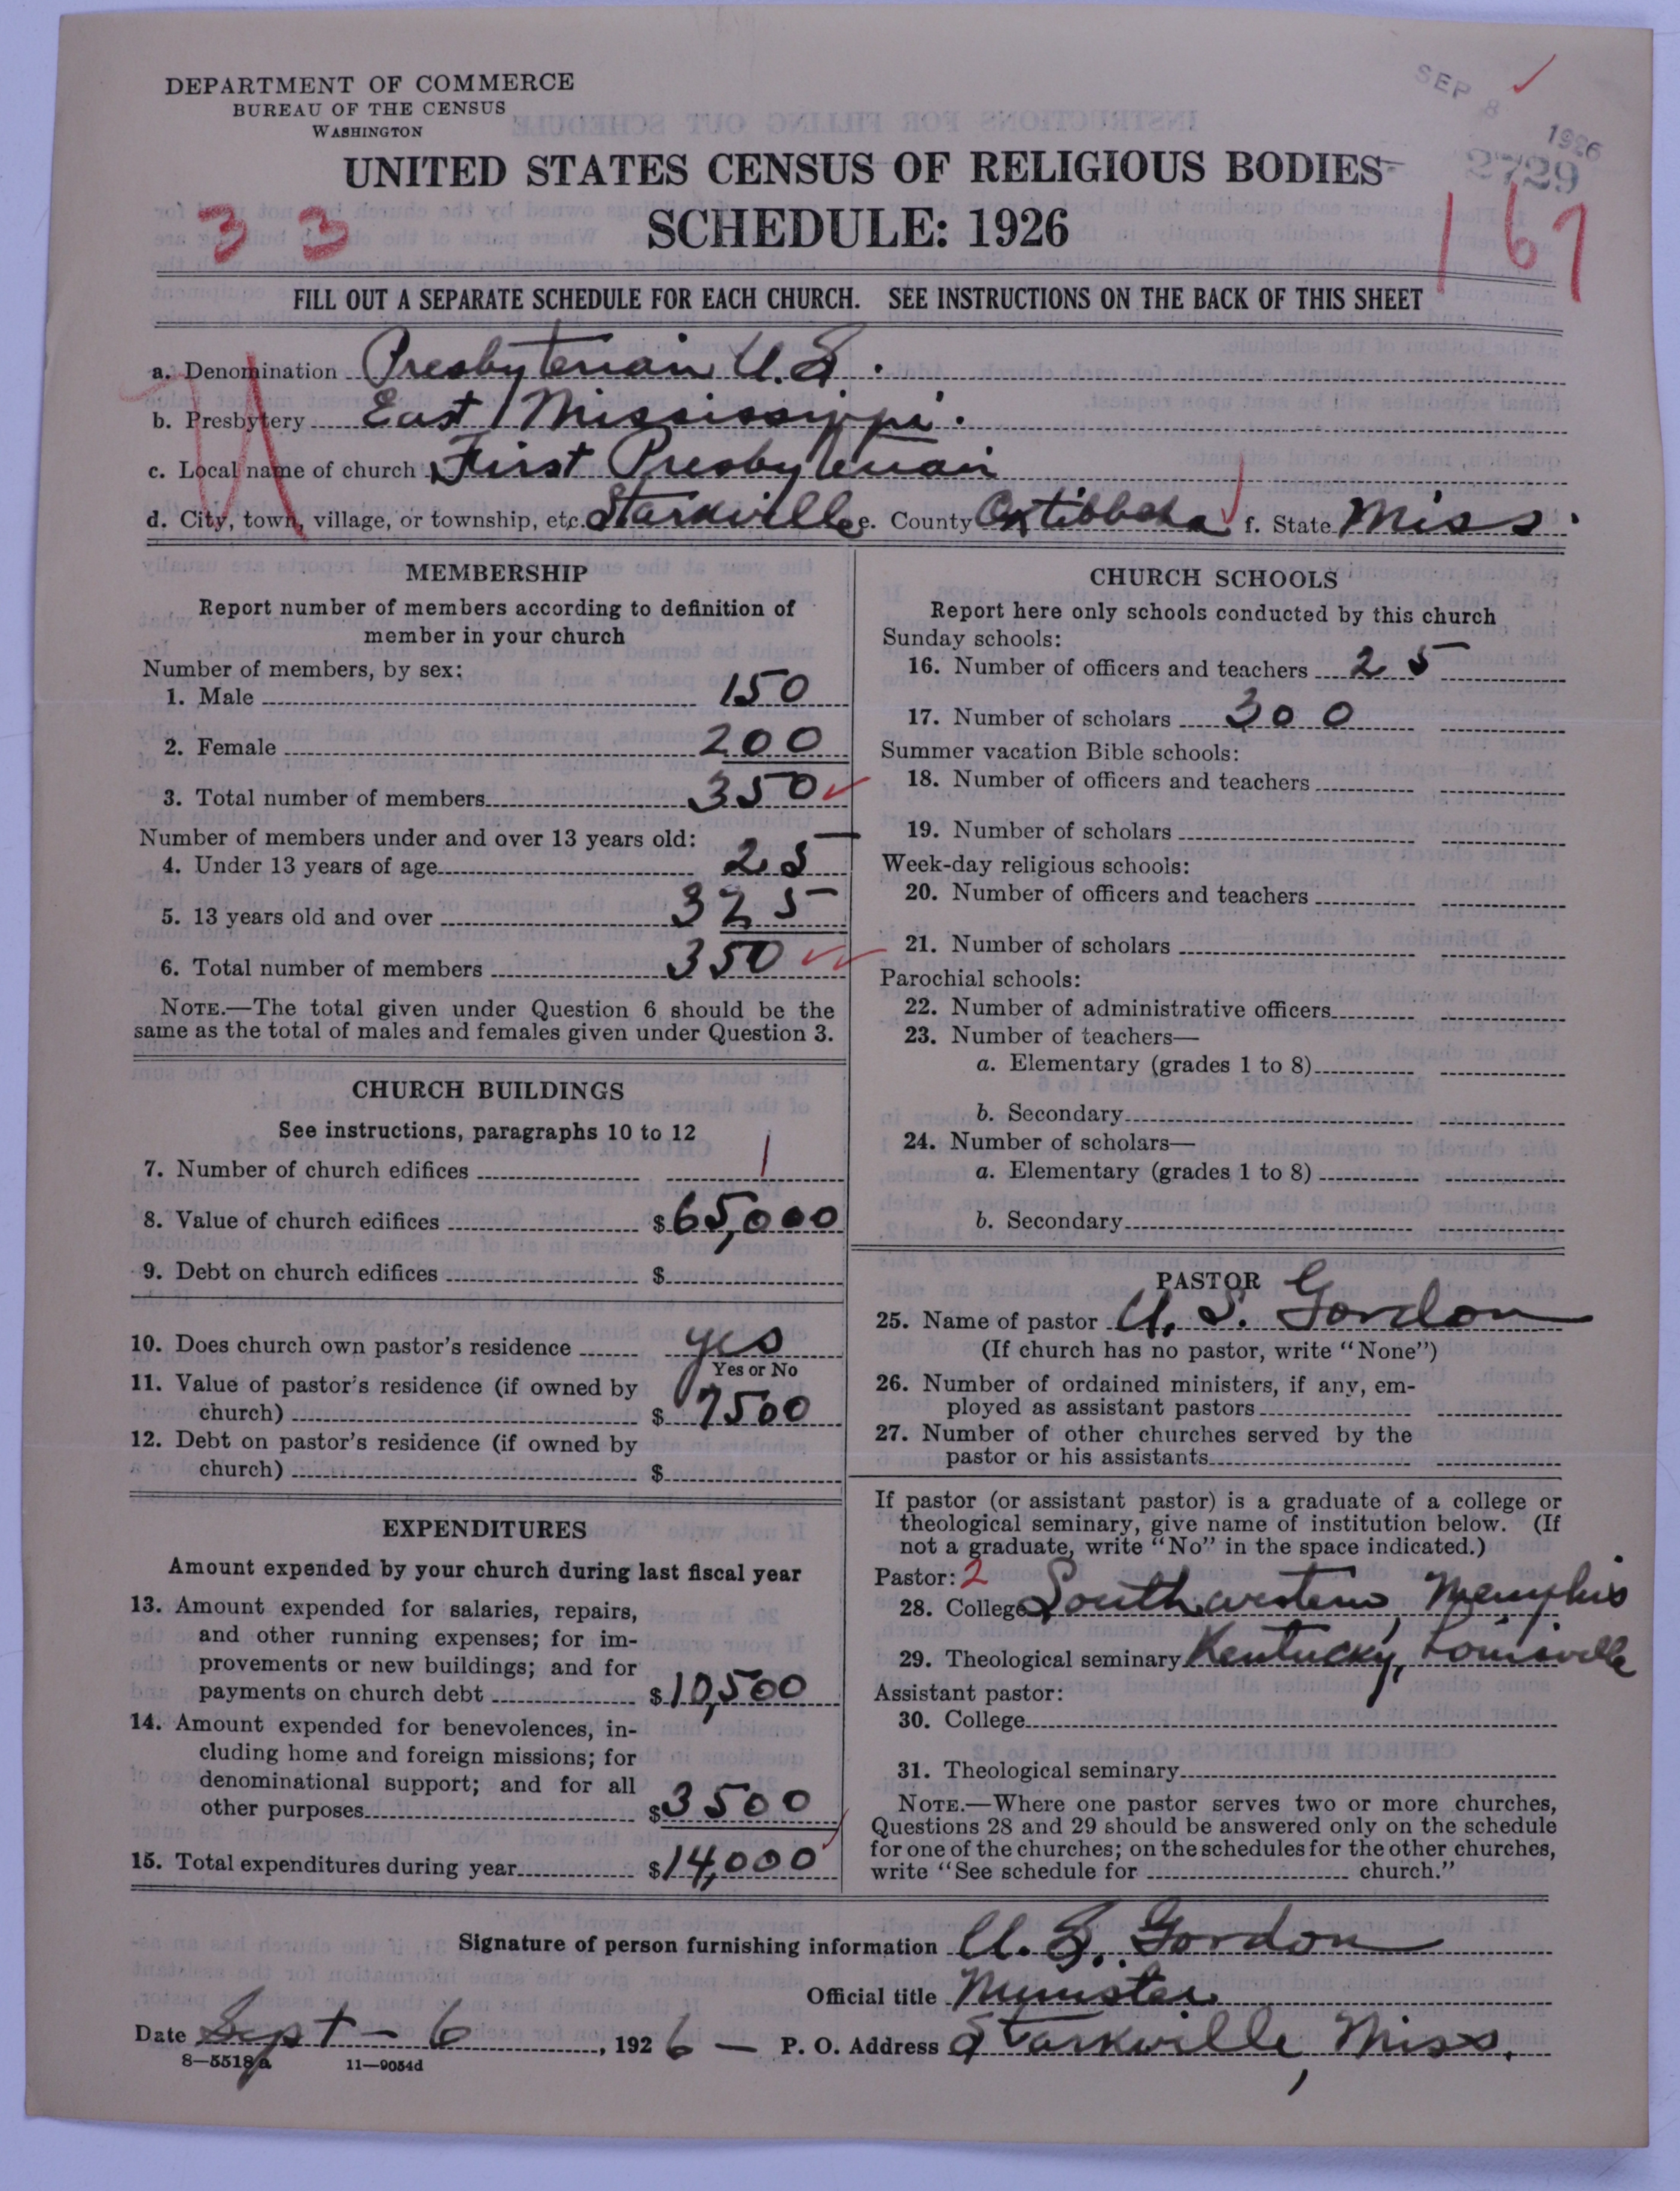 DEPARTMENT OF COMMERCE
BUREAU OF THE CENSUS
WASHINGTON
SEP 8 1926
2729
UNITED STATES CENSUS OF RELIGIOUS BODIES
SCHEDULE: 1926
3 3
167
FILL OUT A SEPARATE SCHEDULE FOR EACH CHURCH. SEE INSTRUCTIONS ON THE BACK OF THIS SHEET
a. Denomination Presbyterian U.S.
b. Presbytery East Mississippi.
c. Local name of church First Presbyterian
d. City, town, village, or township, etc. Starkville e. County Oktibbeha f. State Miss.
MEMBERSHIP
Report number of members according to definition of
member in your church
Number of members, by sex:
1. Male 150
2. Female 200
3. Total number of members 350
Number of members under and over 13 years old:
4. Under 13 years of age 25
5. 13 years old and over 325
6. Total number of members 350
NOTE.—The total given under Question 6 should be the
same as the total of males and females given under Question 3.
CHURCH BUILDINGS
See instructions, paragraphs 10 to 12
7. Number of church edifices 1
8. Value of church edifices $65,000
9. Debt on church edifices $
10. Does church own pastor's residence yes
Yes or No
11. Value of pastor's residence (if owned by
church) $ 7500
12. Debt on pastor's residence (if owned by
church) $
EXPENDITURES
Amount expended by your church during last fiscal year
13. Amount expended for salaries, repairs,
and other running expenses; for im-
provements or new buildings; and for
payments on church debt $10,500
14. Amount expended for benevolences, in-
cluding home and foreign missions; for
denominational support; and for all
other purposes $3500
15. Total expenditures during year $14,000
CHURCH SCHOOLS
Report here only schools conducted by this church
Sunday schools:
16. Number of officers and teachers 25
17. Number of scholars 300
Summer vacation Bible schools:
18. Number of officers and teachers
19. Number of scholars
Week-day religious schools:
20. Number of officers and teachers
21. Number of scholars
Parochial schools:
22. Number of administrative officers
23. Number of teachers—
a. Elementary (grades 1 to 8)
b. Secondary
24. Number of scholars—
a. Elementary (grades 1 to 8)
b. Secondary
PASTOR
25. Name of pastor U. S. Gordon
(If church has no pastor, write "None")
26. Number of ordained ministers, if any, em-
ployed as assistant pastors
27. Number of other churches served by the
pastor or his assistants
If pastor (or assistant pastor) is a graduate of a college or
theological seminary, give name of institution below. (If
not a graduate, write "No" in the space indicated.)
Pastor: 2
28. College Southwestern, Memphis
29. Theological seminary Kentucky, Louisville
Assistant pastor:
30. College
31. Theological seminary
NOTE.—Where one pastor serves two or more churches,
Questions 28 and 29 should be answered only on the schedule
for one of the churches; on the schedules for the other churches,
write "See schedule for church."
Signature of person furnishing information U. S. Gordon
Official title Minister
Date Sept - 6, 1926 — P. O. Address Starkville, Miss.
8—5518a 11—9054d